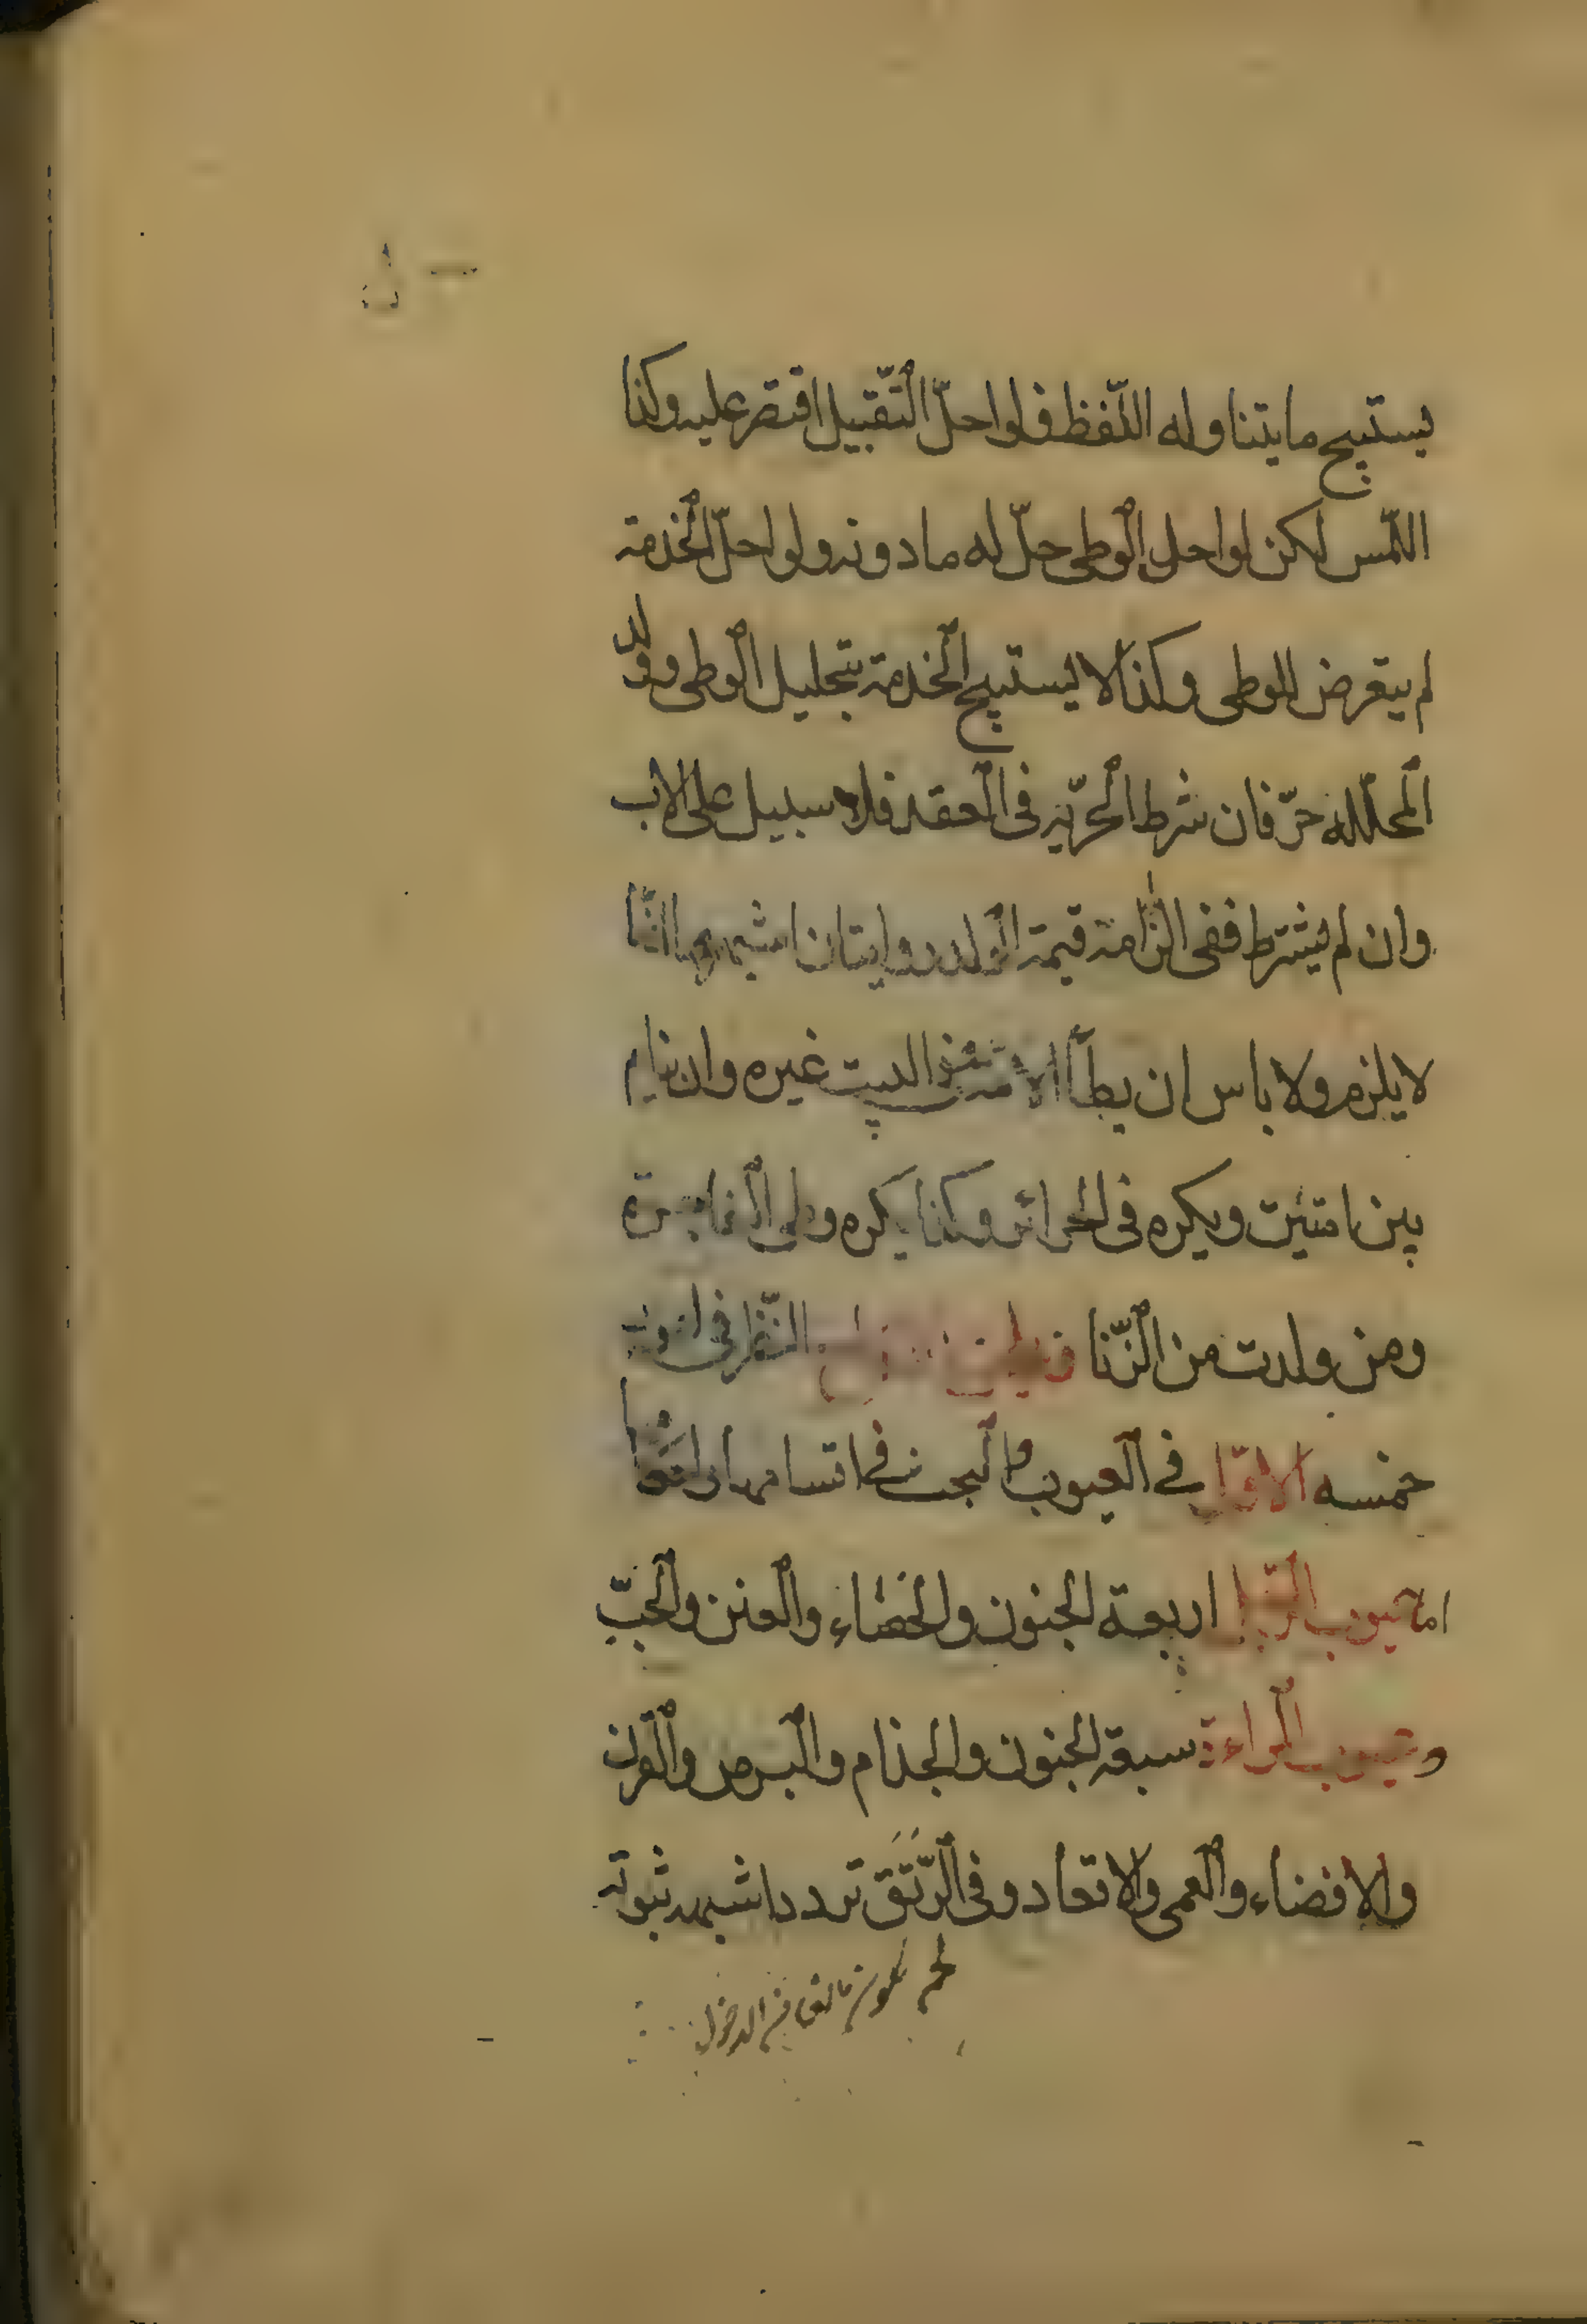 يستبيح ما يتناوله اللّفظ فلو احلّ التّقبيل اقتصر عليه وكذا
اللّمس لكن لو احل الوطى حلّ له ما دونه ولو احلّ الخدمة
لم يتعرض للوطى وكذا لا يستبيح الخدمة بتحليل الوطى وولد
المحلله حرّ فان شرط الحرّيّه فى العقد فلا سبيل على الاب
وان لم يشترط ففى الزامه قيمة الولد روايتان اشبههما انّها
لا يلزم ولا باس ان يطأ الامة وفى البيت غيره وان ينام
بين امتين ويكره فى الحرائر وكذا يكره وطى الفاجرة
ومن ولدت من الزّنا النّظر فى امور
خمسه الاوّل فى العيوب والبحث فى اقسامها
اما عيوب الرّجل اربعة الجنون والخصاء والعنن والجبّ
وعيوب المراءة سبعة الجنون والجذام والبرص والقرن
والافضاء والعمى والاقعاد وفى الرّتق تردد اشبهه ثبوته
الدخول